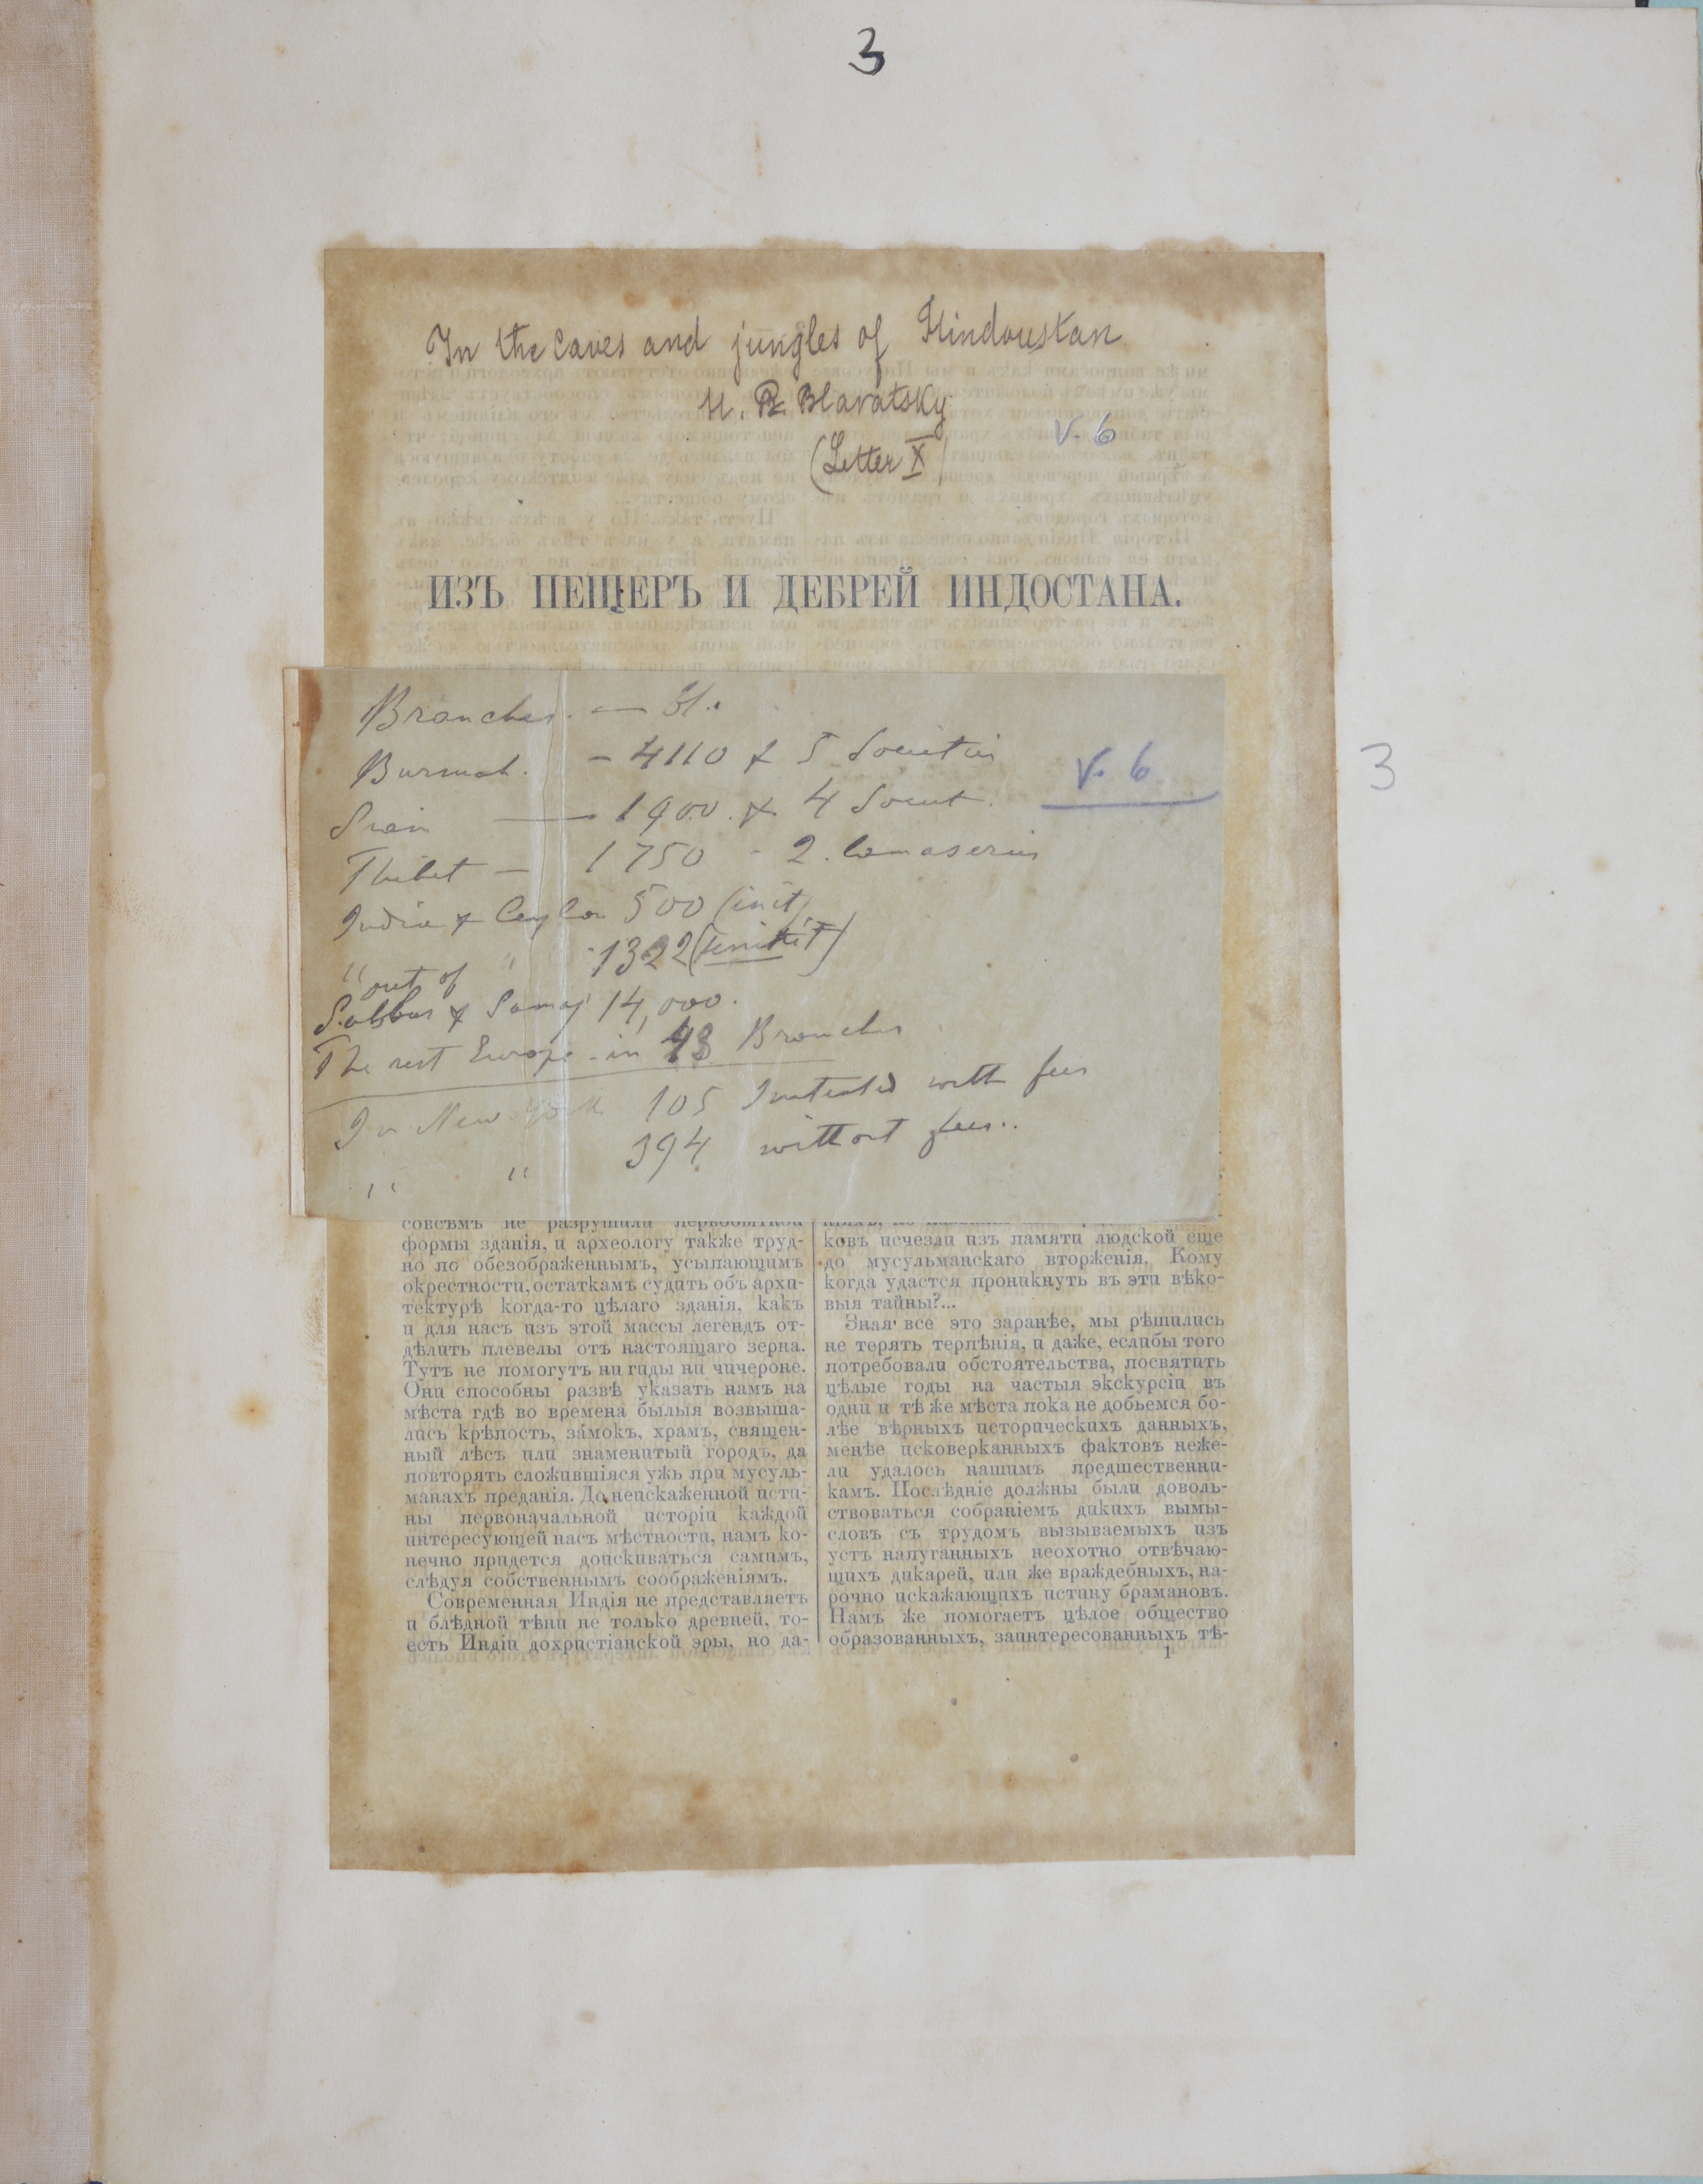 3
In the caves and jungles of Hindoustan
H. P. Blavatsky
(Letter X)
V. 6
ИЗЪ ПЕЩЕРЪ И ДЕБРЕЙ ИНДОСТАНА.
Branches. — 31.
Burmah. — 4110 & 5 Societies
V. 6
3
Siam — 1900. & 4 Societ.
Thibet — 1750 - 2. lamaseries
India & Ceylon 500 (init)
" out of " 1322
& Samaj 14,000.
The rest Europe in 43 Branches
In New York 105 Initiated with fees
" " 394 without fees..
совсѣмъ не разрушили первобытной
формы зданія, и археологу также труд-
но по обезображеннымъ, усыпающимъ
окрестности, остаткамъ судить объ архи-
тектурѣ когда-то цѣлаго зданія, какъ
и для насъ изъ этой массы легендъ от-
дѣлить плевелы отъ настоящаго зерна.
Тутъ не помогутъ ни гиды ни чичероне.
Они способны развѣ указать намъ на
мѣста гдѣ во времена былыя возвыша-
лись крѣпость, за́мокъ, храмъ, священ-
ный лѣсъ или знаменитый городъ, да
повторять сложившіяся ужь при мусуль-
манахъ преданія. До неискаженной исти-
ны первоначальной исторіи каждой
интересующей насъ мѣстности, намъ ко-
нечно придется доискиваться самимъ,
слѣдуя собственнымъ соображеніямъ.
Современная Индія не представляетъ
и блѣдной тѣни не только древней, то-
есть Индіи дохристіанской эры, но да-
ковъ исчезли изъ памяти людской еще
до мусульманскаго вторженія. Кому
когда удастся проникнуть въ эти вѣко-
выя тайны?...
Зная все это заранѣе, мы рѣшились
не терять терпѣнія, и даже, еслибы того
потребовали обстоятельства, посвятить
цѣлые годы на частыя экскурсіи въ
одни и тѣ же мѣста пока не добьемся бо-
лѣе вѣрныхъ историческихъ данныхъ,
менѣе исковерканныхъ фактовъ неже-
ли удалось нашимъ предшественни-
камъ. Послѣдніе должны были доволь-
ствоваться собраніемъ дикихъ вымы-
словъ съ трудомъ вызываемыхъ изъ
устъ напуганныхъ неохотно отвѣчаю-
щихъ дикарей, или же враждебныхъ, на-
рочно искажающихъ истину брамановъ.
Намъ же помогаетъ цѣлое общество
образованныхъ, заинтересованныхъ тѣ-
1